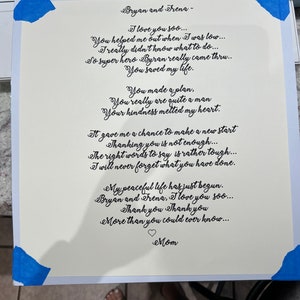 Bryan and Irena -
I love you soo...
You helped me out when I was low...
I really didn't know what to do...
So super hero Byran really came thru...
You saved my life.
You made a plan,
You really are quite a man
Your kindness melted my heart.
It gave me a chance to make a new start
Thanking you is not enough...
The right words to say is rather tough...
I will never forget what you have done.
My peaceful life has just begun.
Bryan and Irena, I love you soo...
Thank you Thank you
More than you could ever know...
Mom